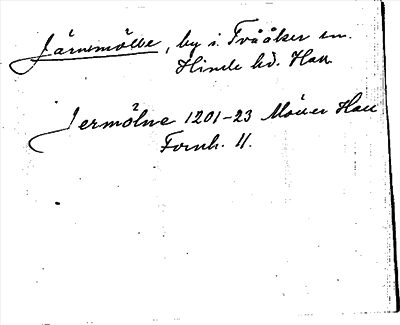 Järnmölle, by i Tvååker sn.
Himle hd. Hall
Jermölne 1201-23 Möller Hall
Fornh. II.